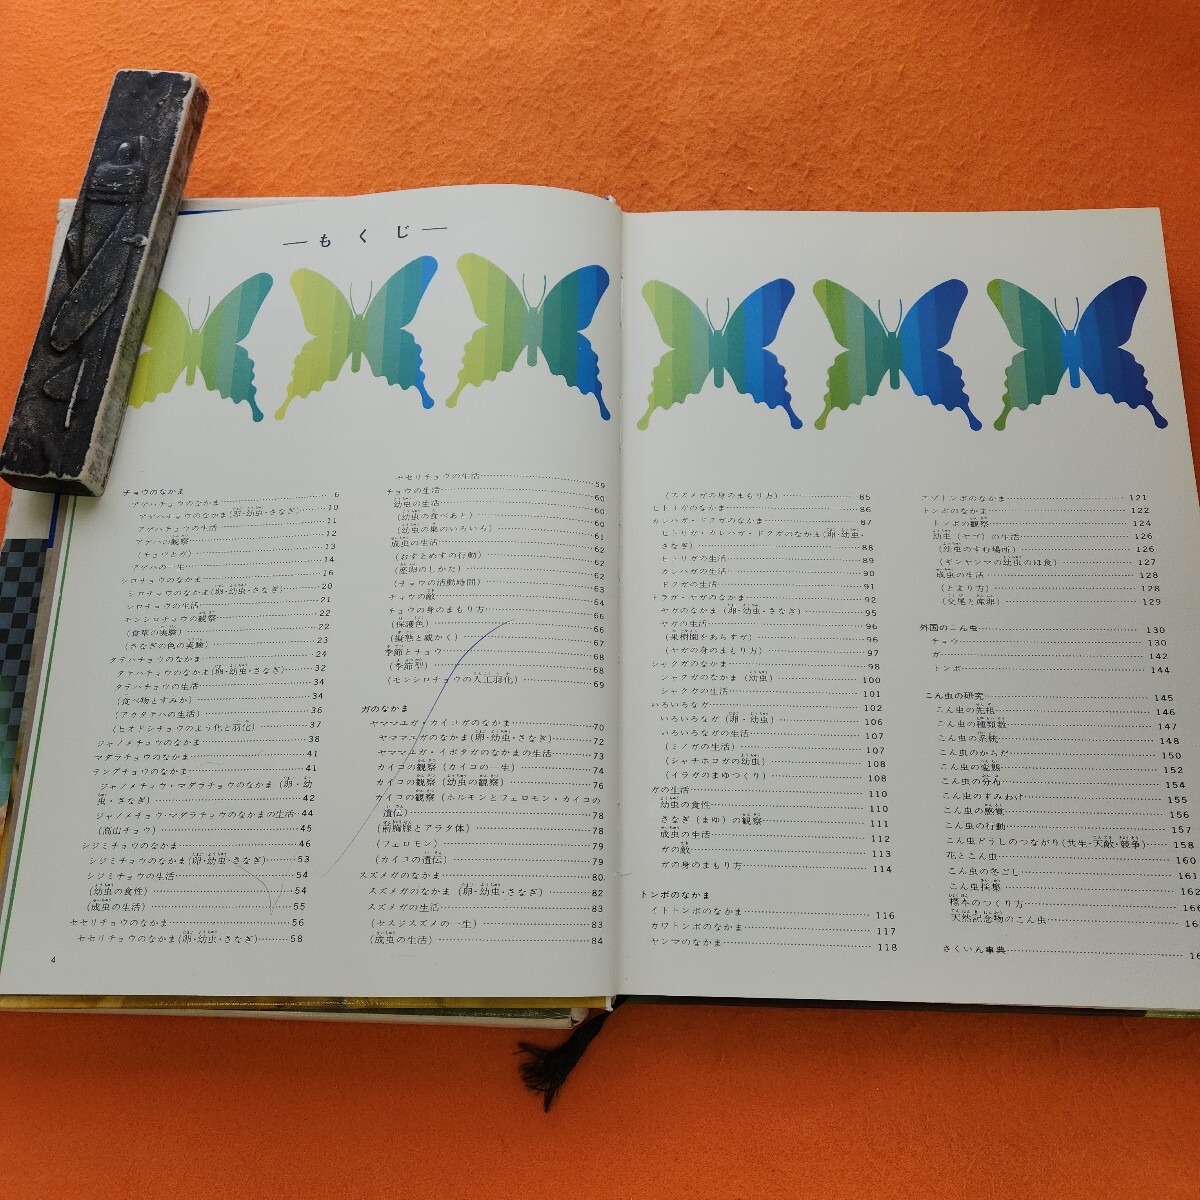 もくじ
チョウのなかま 6
アゲハチョウのなかま 10
アゲハチョウのなかま(卵・幼虫・さなぎ) 11
アゲハチョウの生活 12
アゲハの観察 13
(チョウとガ) 14
アゲハの一生 16
シロチョウのなかま 20
シロチョウのなかま(卵・幼虫・さなぎ) 21
シロチョウの生活 22
モンシロチョウの観察 22
(食草の実験) 23
(さなぎの色の実験) 24
タテハチョウのなかま 32
タテハチョウのなかま(卵・幼虫・さなぎ) 34
タテハチョウの生活 34
(食べ物とすみか) 36
(アカタテハの生活) 37
(ヒオドシチョウのよう化と羽化)
ジャノメチョウのなかま 38
マダラチョウのなかま 41
テングチョウのなかま 41
ジャノメチョウ・マダラチョウのなかま(卵・幼
虫・さなぎ) 42
ジャノメチョウ・マダラチョウのなかまの生活 44
(高山チョウ) 45
シジミチョウのなかま 46
シジミチョウのなかま(卵・幼虫・さなぎ) 53
シジミチョウの生活 54
(幼虫の食性) 54
(成虫の生活) 55
セセリチョウのなかま 56
セセリチョウのなかま(卵・幼虫・さなぎ) 58
4
セセリチョウの生活 59
チョウの生活 60
幼虫の生活 60
(幼虫の食べあと) 60
(幼虫の巣のいろいろ) 61
成虫の生活 62
(おすとめすの行動) 62
(産卵のしかた) 62
(チョウの活動時間) 63
チョウの敵 64
チョウの身のまもり方 66
(保護色) 66
(擬態と威かく) 67
季節とチョウ 68
(季節型) 68
(モンシロチョウの人工羽化) 69
ガのなかま
ヤママユガ・カイコガのなかま 70
ヤママユガのなかま(卵・幼虫・さなぎ) 72
ヤママユガ・イボタガのなかまの生活 73
カイコの観察(カイコの一生) 74
カイコの観察(幼虫の観察) 76
カイコの観察(ホルモンとフェロモン・カイコの
遺伝) 78
(前胸腺とアラタ体) 78
(フェロモン) 79
(カイコの遺伝) 79
スズメガのなかま 80
スズメガのなかま(卵・幼虫・さなぎ) 82
スズメガの生活 83
(セスジスズメの一生) 83
(成虫の生活) 84
(スズメガの身のまもり方) 85
ヒトリガのなかま 86
カレハガ・ドクガのなかま 87
ヒトリガ・カレハガ・ドクガのなかま(卵・幼虫・
さなぎ) 88
ヒトリガの生活 89
カレハガの生活 90
ドクガの生活 91
トラガ・ヤガのなかま 92
ヤガのなかま(卵・幼虫・さなぎ) 95
ヤガの生活 96
(果樹園をあらすガ) 96
(ヤガの身のまもり方) 97
シャクガのなかま 98
シャクガのなかま(幼虫) 100
シャクガの生活 101
いろいろなガ 102
いろいろなガ(卵・幼虫) 106
いろいろなガの生活 107
(ミノガの生活) 107
(シャチホコガの幼虫) 108
(イラガのまゆつくり) 108
ガの生活 110
幼虫の食性 110
さなぎ(まゆ)の観察 111
成虫の生活 112
ガの敵 113
ガの身のまもり方 114
トンボのなかま
イトトンボのなかま 116
カワトンボのなかま 117
ヤンマのなかま 118
トンボのなかま 122
トンボの観察 124
幼虫(ヤゴ)の生活 126
(幼虫のすむ場所) 126
(ギンヤンマの幼虫のほ食) 127
成虫の生活 128
(とまり方) 128
(交尾と産卵) 129
外国のこん虫 130
チョウ 130
ガ 142
トンボ 144
こん虫の研究 145
こん虫の先祖 146
こん虫の種類数 147
こん虫の系統 148
こん虫のからだ 150
こん虫の変態 152
こん虫の分布 154
こん虫のすみわけ 155
こん虫の感覚 156
こん虫の行動 157
こん虫どうしのつながり(共生・天敵・競争) 158
花とこん虫 160
こん虫の冬ごし 161
こん虫採集 162
標本のつくり方 166
天然記念物のこん虫
さくいん事典